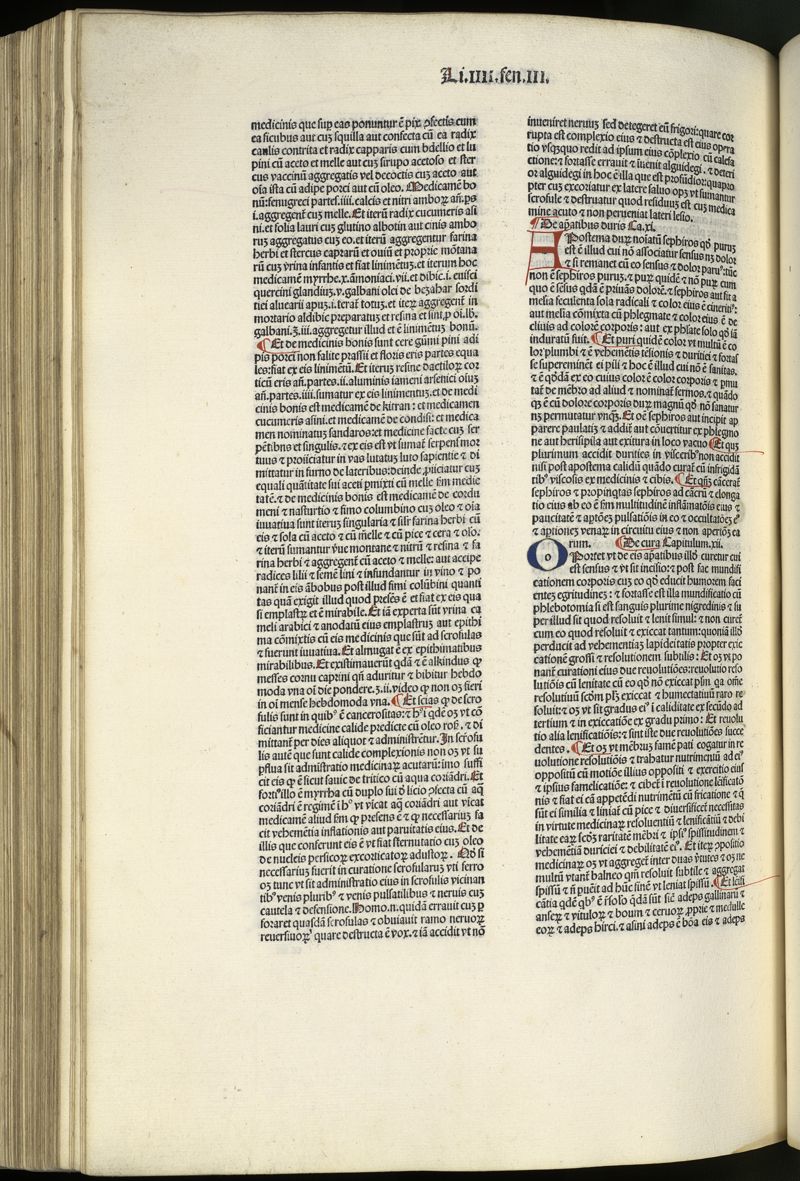 Li.IIII.fen.III.
medicinis que suꝑ eas ponuntur ē pix ꝯfectis cum
ea sicubus aut cuȝ squilla aut confecta cū ea radix
caulis contrita et radix capparis cum bdellio et lu
pini cū aceto et melle aut cuȝ sirupo acetoso et ster
cus vaccinū aggregatis vel decoctis cuȝ aceto aut
oīa ista cū adipe porci aut cū oleo. Medicamē bo
nū: fenugreci partes.iiii.calcis et nitri amboꝝ añ.ps
i.aggregent̄ cuȝ melle. Et iterū radix cucumeris asi
ni.et folia lauri cuȝ glutino albotin aut cinis ambo
ruȝ aggregatus cuȝ eo.et iterū aggregentur farina
herbi et stercus capraꝝ et ouiū et proprie mōtana
rū cuȝ vrina infantis et fiat linimētuȝ.et iterum hoc
medicamē myrrhe.x.āmoniaci.vii.et dibic.i.euisci
quercini glandiuȝ.v.galbani olei de bezahar sordi
tiei aluearii apuȝ.i.terat̄ totuȝ.et iteꝝ aggregent̄ in
mortario aldibic preparatus et resina et sint ꝓ oī.lb.
galbani.ʒ.iii.aggregetur illud et ē linimētuȝ bonū.
¶ Et de medicinis bonis sunt cere gūmi pini adi
pis porci non salite prassii et floris eris partes equa
les: fiat ex eis linimētū. Et iteruȝ resine dactiloꝝ cor
ticū eris añ.partes.ii.aluminis iameni arsenici oiuȝ
añ.partes.iiii.sumatur ex eis linimentuȝ.et de medi
cinis bonis est medicamē de kitran: et medicamen
cucumeris asini.et medicamē de condisi: et medica
men nominatuȝ sandaros: et medicine facte cuȝ ser
pētibus et singulis.et ex eis est vt sumat̄ serpens mor
tuus et proiiciatur in vas lutatuȝ luto sapientie et di
mittatur in furno de lateribus: deinde ꝓiiciatur cuȝ
equali quātitate sui aceti pmixti cū melle fm medie
tatē.et de medicinis bonis est medicamē de cordu
meni et nasturtio et fimo columbino cuȝ oleo et oīa
iuuatiua sunt iteruȝ singularia et silr farina herbi cū
eis et sola cū aceto et cū melle et cū pice et cera et oīo.
et iterū sumantur vue montane et nitrū et resina et fa
rina herbi et aggregent̄ cū aceto et melle: aut accipe
radices lilii et semē lini et infundantur in vino et po
nant̄ in eis ābobus post illud fimi colūbini quanti
tas quā exigit illud quod presēs ē et fiat ex eis qua
si emplastꝝ et ē mirabile. Et iā experta sūt vrina ca
meli arabici et anodatū eius emplastruȝ aut epithi
ma cōmixtis cū eis medicinis que sūt ad scrofulas
et fuerunt iuuatiua. Et almugat ē ex epithimatibus
mirabilibus. Et existimauerūt qdā et ē alkindus ꝙ
messes cornu caprini qñ aduritur et bibitur hebdo
moda vna oī die pondere.ʒ.ii.video ꝙ non oȝ fieri
in oī mense hebdomoda vna. ¶ Et scias ꝙ de scro
fulis sunt in quibꝰ ē cancerositas: et hꝰ qdē oȝ vt cō
ficiantur medicine calide predicte cū oleo roꝝ. et di
mittant̄ per dies aliquot et administrētur. In scrofu
lis autē que sunt calide complexionis non oȝ vt su
pflua sit admistratio medicinaꝝ acutarū: imo suffi
cit eis ꝙ ē sicut sauic de tritico cū aqua coriādri. Et
fortꝰ illo ē myrrha cū duplo sui de licio ꝯfecta cū aq̄
coriādri ē regimē ī hꝰ vt vicat aq̄ coriādri aut vicat
medicamē aliud fm ꝙ presens ē et ꝙ necessariuȝ fa
cit vehemētia inflationis aut paruitatis eius. Et de
illis que conferunt eis ē vt fiat sternutatio cuȝ oleo
de nucleis persicoꝝ excorticatoꝝ adustoꝝ. Qd si
necessariuȝ fuerit in curatione scrofularuȝ vti ferro
oȝ tunc vt sit administratio eius in scrofulis vicinan
tibꝰ venis pluribꝰ et venis pulsatilibus et neruis cuȝ
cautela et defensione. Homo.n.quidā errauit cuȝ p
foraret quasdā scrofulas et obuiauit ramo neruoꝝ
reuersiuoꝝ quare destructa ē vox.et iā accidit vt nō
inueniret neruuȝ sed detegeret cū frigori: quare cor
rupta est complexio eius et destructa est eius opera
tio vsqȝquo redit ad ipsum eius cōplexio cū calefa
ctione: et fortasse errauit et inuenit alguidegi. et deteri
or alguidegi in hoc ē illa que est profūdior: quapro
pter cuȝ excoriatur ex latere saluo opȝ vt sumantur
scrofule et destruatur quod residuuȝ est cuȝ medica
mine acuto et non perueniat lateri lesio.
¶ De apatibus duris Ca.xi.
APostema duꝝ noiatū sephiros qd puruȝ
est ē illud cui nō associatur sensus nȝ dolor
et si remanet cū eo sensus et dolor paruꝰ tūc
non ē sephiros puruȝ.et puꝝ quidē et nō puꝝ cum
quo ē sēsus qdā ē priuās dolorē.et sephiros aut fit a
melia feculenta sola radicali et color eius ē cineritiꝰ:
aut melia cōmixta cū phlegmate et color eius ē de
cliuis ad colorē corporis: aut ex phlate solo qd iā
induratū fuit. ¶ Et puri quidē color vt multū ē co
lor plumbi et ē vehemētis tēsionis et duritiei et fortas
se supereminēt ei pili et hoc ē illud cui nō ē sanitas.
et ē qddā ex eo cuius color ē color corporis et pmu
tat̄ de mēbro ad aliud et nominat̄ sermos.et quādo
qȝ ē cū dolore corporis duꝝ magnū qd nō sanatur
nȝ permutatur vnqȝ. Et oē sephiros aut incipit ap
parere paulatiȝ et addit̄ aut cōuertitur ex phlegmo
ne aut herisipila aut exitura in loco vacuo ¶ Et quȝ
plurimum accidit durities in visceribꝰ non accidit
nisi post apostema calidū quādo curat̄ cū infrigidā
tibꝰ viscosis ex medicinis et cibis. ¶ Et qñȝ cācerat̄
sephiros et propinqtas sephiros ad cācrū et elonga
tio eius ab eo ē fm multitudinē inflamatōis eius et
paucitatē et aptōeȝ pulsatiōis in eo et occultatōeȝ eꝰ
et aptioneȝ venaꝝ in circuitu eius et non aperiōeȝ ea
rum. ¶ De cura Capitulum.xii.
OPortet vt de eis apatibus illd curetur cui
est sensus et vt sit incisio: et post fac mundifi
cationem corporis cuȝ eo qd educit humorem faci
enteȝ egritudineȝ: et fortasse est illa mundificatio cū
phlebotomia si est sanguis plurime nigredinis et su
per illud sit quod resoluit et lenit simul: et non curet̄
cum eo quod resoluit et exiccat tantum: quoniā illd
perducit ad vehementiaȝ lapideitatis propter exic
cationē grossi et resolutionem subtilis: Et oȝ vt po
nant̄ curationi eius due reuolutiōes: reuolutio reso
lutiōis cū lenitate cū eo qd nō exiccat psm qa oīne
resolutiuū scdm plȝ exiccat et humectatiuū raro re
soluit: et oȝ vt sit gradus eiꝰ ī caliditate ex secūdo ad
tertium et in exiccatiōe ex gradu primo: Et reuolu
tio alia lenificatiōis: et sint iste due reuolutiōes succe
dentes. ¶ Et oȝ vt mēbruȝ famē pati cogatur in re
uolutione resolutiōis et trahatur nutrimētū ad eiꝰ
oppositū cū motiōe illius oppositi et exercitio eius
et ipsius famelicatiōe: et cibet̄ ī reuolutione lenificatō
nis et fiat ei cā appetēdi nutrimētū cū fricatione et q̄
sūt ei similia et liniat̄ cū pice et diuersificet̄ necessitas
in virtute medicinaꝝ resoluentiū et lenificātiū et debi
litate eaꝝ scdȝ raritatē mēbri et ipsiꝰ spissitudinem et
vehemētiā duriciei et debilitatē eiꝰ. Et iteꝝ ꝓpositio
medicinaꝝ oȝ vt aggreget̄ inter duas v̄tutes et oȝ ne
multū vtant̄ balneo qm̄ resoluit subtile et aggregat
spissū et ñ puēit ad hūc finē vt leniat spissū. ¶ Et lenifi
catia qdē qbꝰ ē rsoło qdā sūt sic adeps gallinarū et
anseꝝ et vituloꝝ et boum et ceruoꝝ ꝓprie et medulle
eoꝝ et adeps hirci.et asini adeps ē bōa eis et adeps